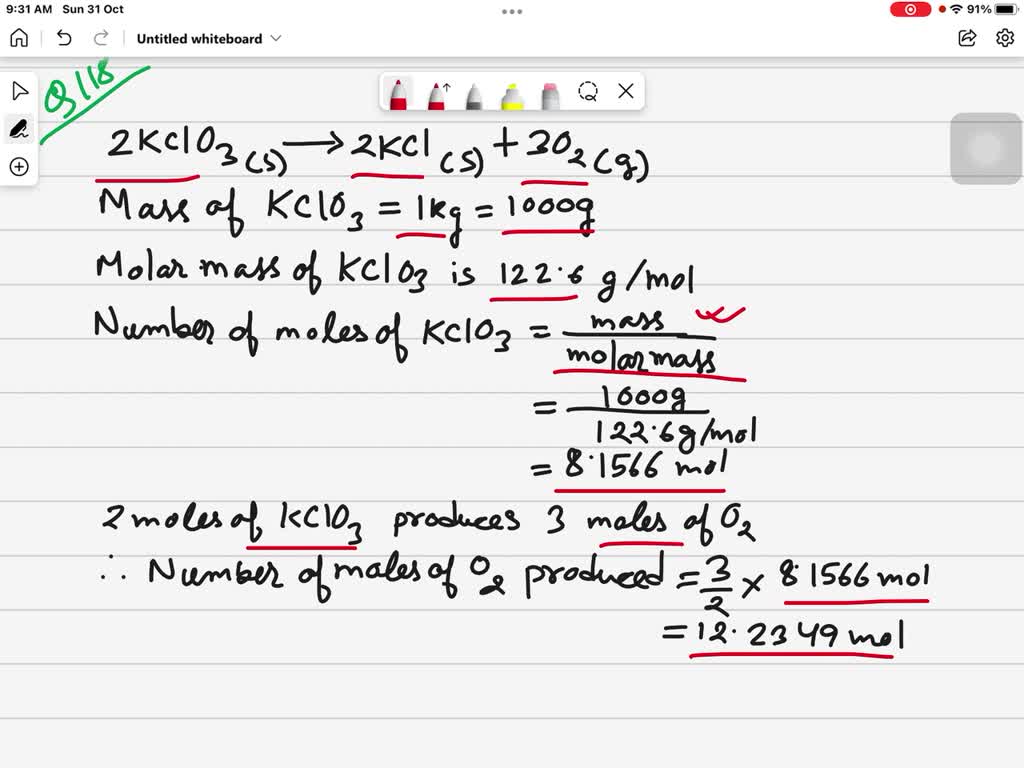 9:31 AM Sun 31 Oct
91%
Untitled whiteboard
Q118
2KClO3(s) → 2KCl(s) + 3O2(g)
Mass of KClO3 = 1kg = 1000g
Molar mass of KClO3 is 122.6 g/mol
Number of moles of KClO3 = mass / molar mass
= 1000g / 122.6g/mol
= 8.1566 mol
2 moles of KClO3 produces 3 moles of O2
∴ Number of moles of O2 produced = 3/2 × 8.1566 mol
= 12.2349 mol